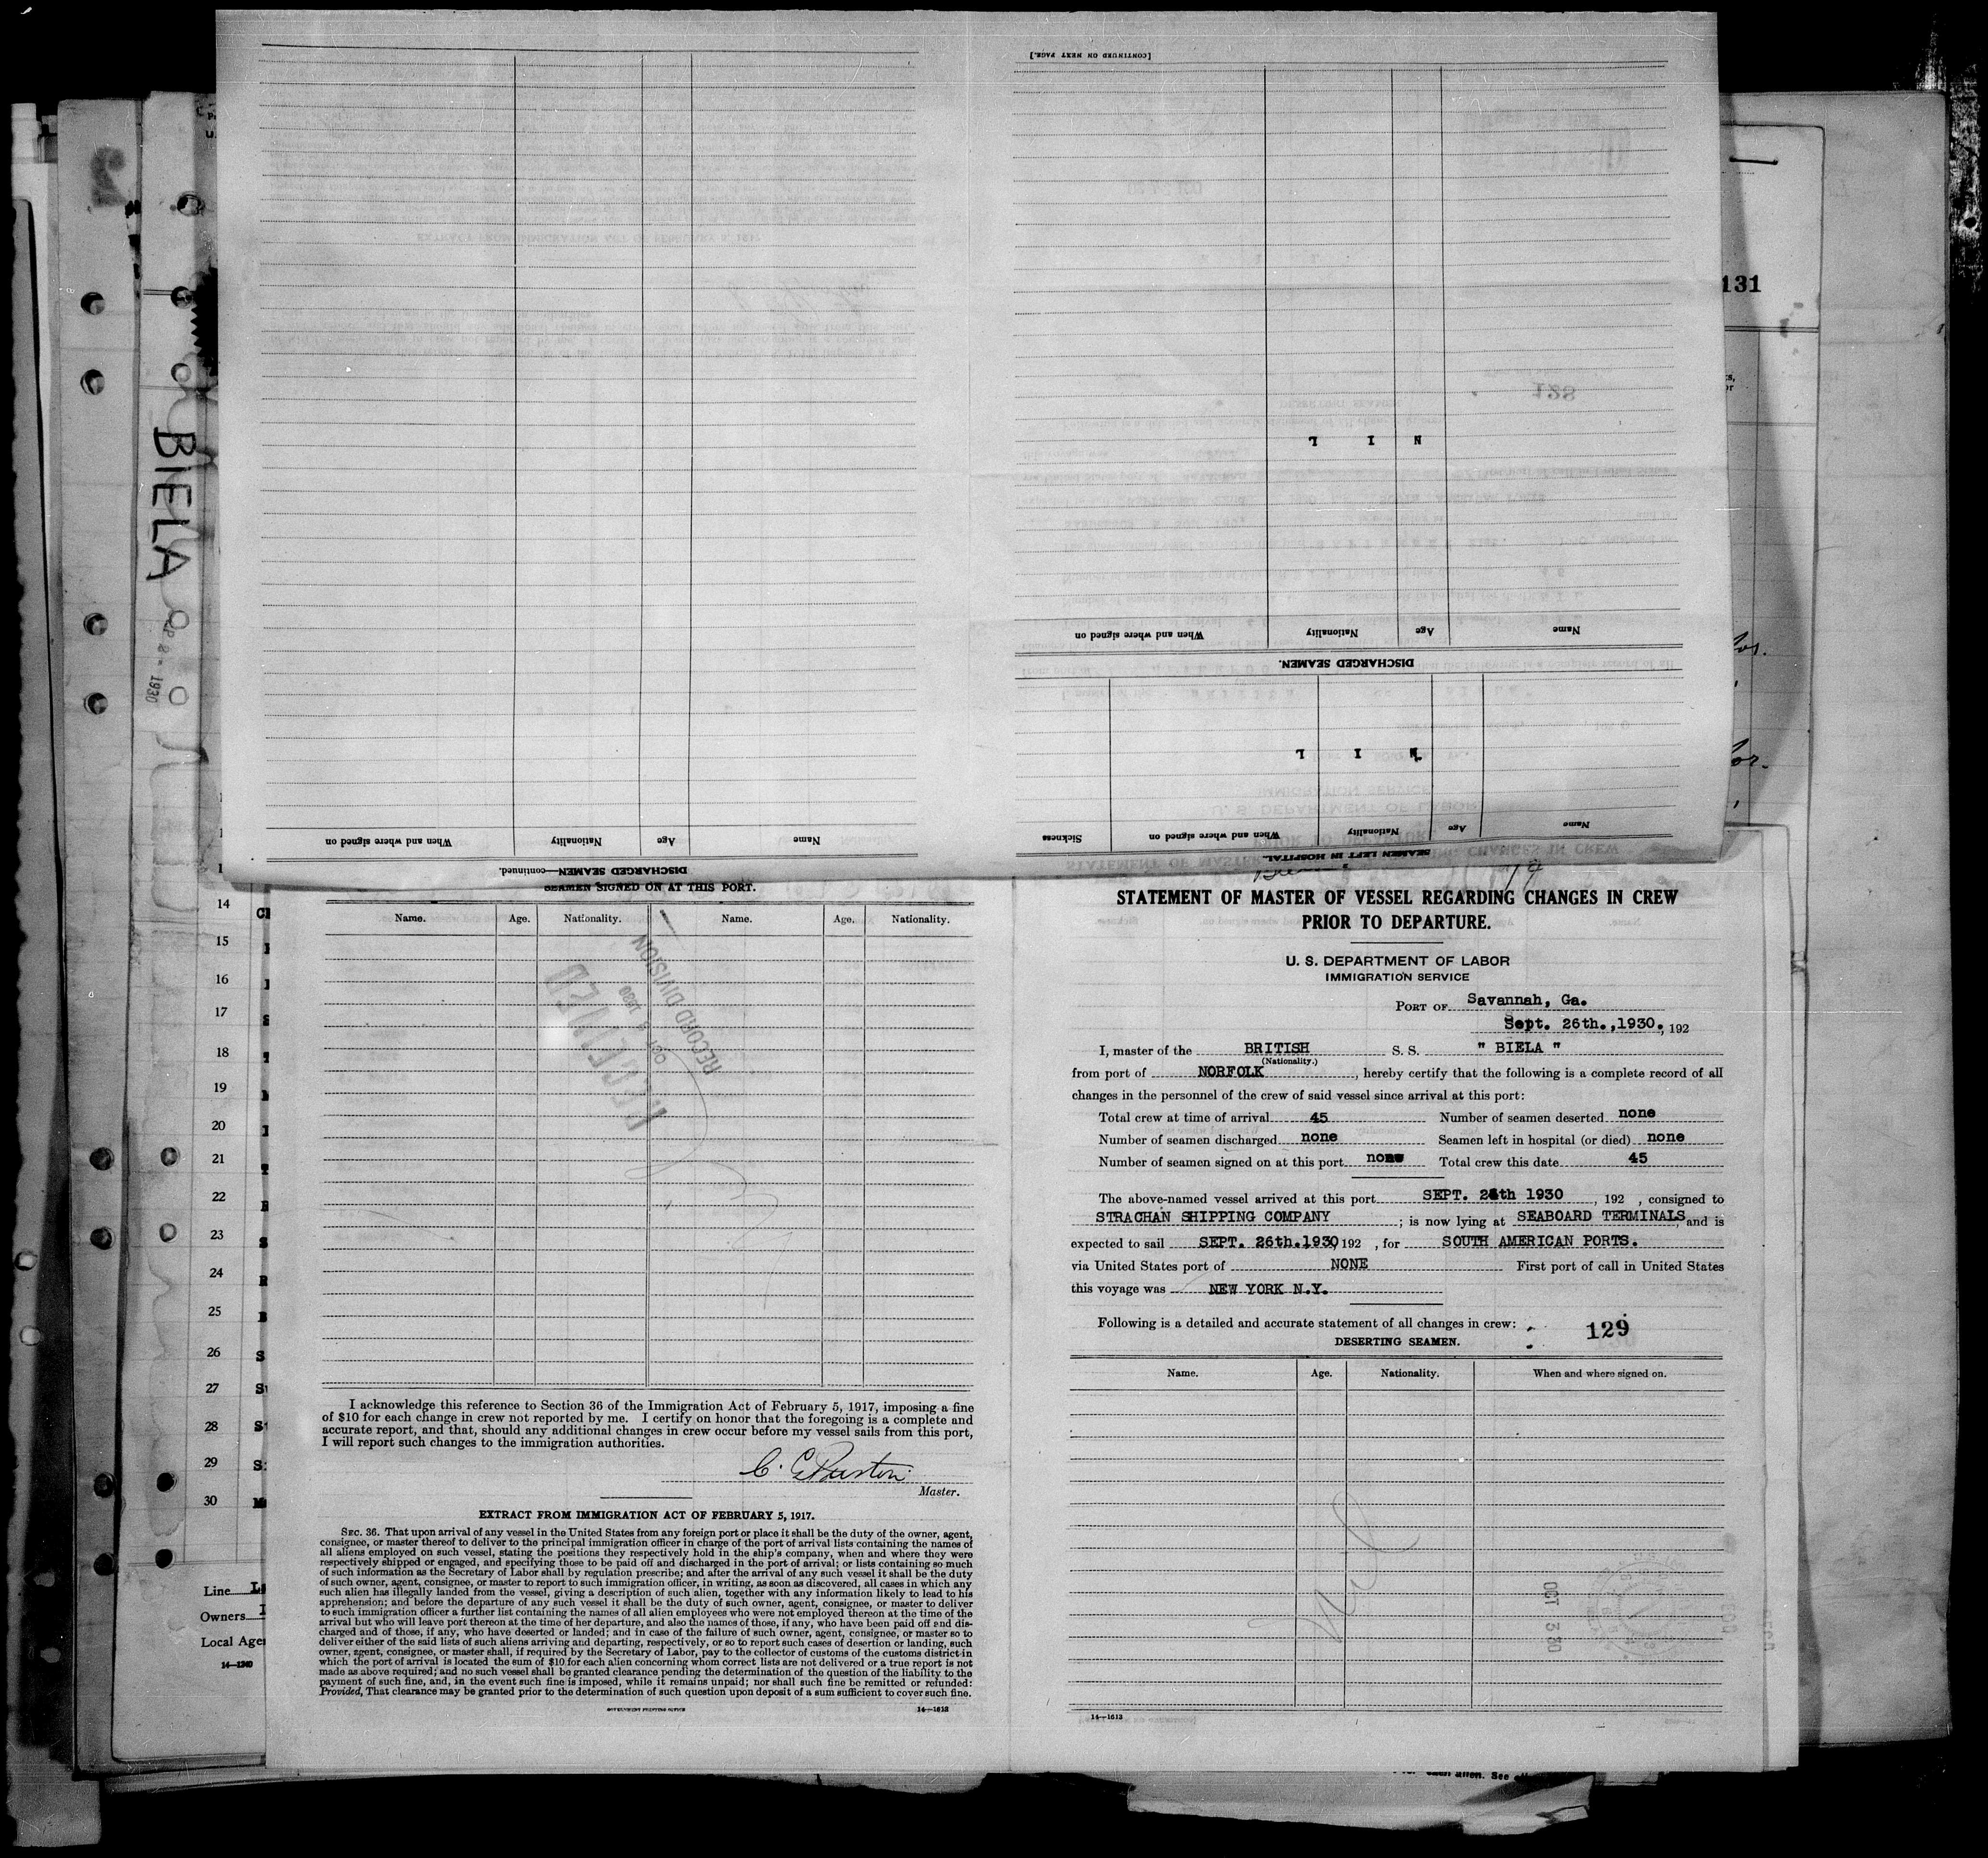 [CONTINUED ON NEXT PAGE.]
N I L
Name Age Nationality When and where signed on
DISCHARGED SEAMEN.
N I L
Name Age Nationality When and where signed on Sickness
SEAMEN LEFT IN HOSPITAL.
Name Age Nationality When and where signed on
DISCHARGED SEAMEN—continued.
131
128
BIELA
1930
SEAMEN SIGNED ON AT THIS PORT.
Name. Age. Nationality. Name. Age. Nationality.
RECEIVED
OCT 1930
RECORD DIVISION
14
15
16
17
18
19
20
21
22
23
24
25
26
27
28
29
30
Line
Owners
Local Age
14—1240
I acknowledge this reference to Section 36 of the Immigration Act of February 5, 1917, imposing a fine
of $10 for each change in crew not reported by me. I certify on honor that the foregoing is a complete and
accurate report, and that, should any additional changes in crew occur before my vessel sails from this port,
I will report such changes to the immigration authorities.
Master.
EXTRACT FROM IMMIGRATION ACT OF FEBRUARY 5, 1917.
SEC. 36. That upon arrival of any vessel in the United States from any foreign port or place it shall be the duty of the owner, agent,
consignee, or master thereof to deliver to the principal immigration officer in charge of the port of arrival lists containing the names of
all aliens employed on such vessel, stating the positions they respectively hold in the ship's company, when and where they were
respectively shipped or engaged, and specifying those to be paid off and discharged in the port of arrival; or lists containing so much
of such information as the Secretary of Labor shall by regulation prescribe; and after the arrival of any such vessel it shall be the duty
of such owner, agent, consignee, or master to report to such immigration officer, in writing, as soon as discovered, all cases in which any
such alien has illegally landed from the vessel, giving a description of such alien, together with any information likely to lead to his
apprehension; and before the departure of any such vessel it shall be the duty of such owner, agent, consignee, or master to deliver
to such immigration officer a further list containing the names of all alien employees who were not employed thereon at the time of the
arrival but who will leave port thereon at the time of her departure, and also the names of those, if any, who have been paid off and dis-
charged and of those, if any, who have deserted or landed; and in case of the failure of such owner, agent, consignee, or master so to
deliver either of the said lists of such aliens arriving and departing, respectively, or so to report such cases of desertion or landing, such
owner, agent, consignee, or master shall, if required by the Secretary of Labor, pay to the collector of customs of the customs district in
which the port of arrival is located the sum of $10 for each alien concerning whom correct lists are not delivered or a true report is not
made as above required; and no such vessel shall be granted clearance pending the determination of the question of the liability to the
payment of such fine, and, in the event such fine is imposed, while it remains unpaid; nor shall such fine be remitted or refunded:
Provided, That clearance may be granted prior to the determination of such question upon deposit of a sum sufficient to cover such fine.
GOVERNMENT PRINTING OFFICE 14—1613
STATEMENT OF MASTER OF VESSEL REGARDING CHANGES IN CREW
PRIOR TO DEPARTURE.
U. S. DEPARTMENT OF LABOR
IMMIGRATION SERVICE
PORT OF Savannah, Ga.
Sept. 26th.,1930., 192
I, master of the BRITISH S. S. " BIELA "
(Nationality.)
from port of NORFOLK, hereby certify that the following is a complete record of all
changes in the personnel of the crew of said vessel since arrival at this port:
Total crew at time of arrival 45 Number of seamen deserted none
Number of seamen discharged none Seamen left in hospital (or died) none
Number of seamen signed on at this port none Total crew this date 45
The above-named vessel arrived at this port SEPT. 1930, 192 , consigned to
STRACHAN SHIPPING COMPANY; is now lying at SEABOARD TERMINALS, and is
expected to sail SEPT. 26th.1930, 192 , for SOUTH AMERICAN PORTS.
via United States port of NONE First port of call in United States
this voyage was NEW YORK N.Y.
Following is a detailed and accurate statement of all changes in crew:
129
DESERTING SEAMEN.
Name. Age. Nationality. When and where signed on.
Nil
OCT 3 30
14—1613